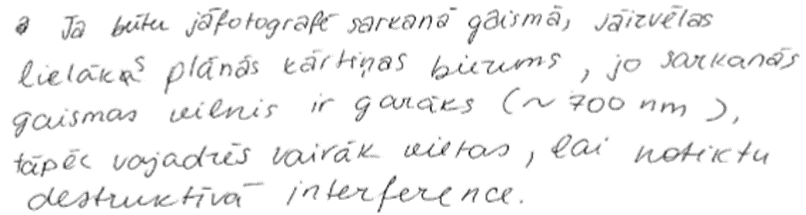 a Ja būtu jāfotografē sarkanā gaismā, jāizvēlas
lielākas plānās kārtiņas biezums, jo sarkanās
gaismas vilnis ir garāks (~ 700 nm),
tāpēc vajadzēs vairāk vietas, lai notiktu
destruktīvā interference.